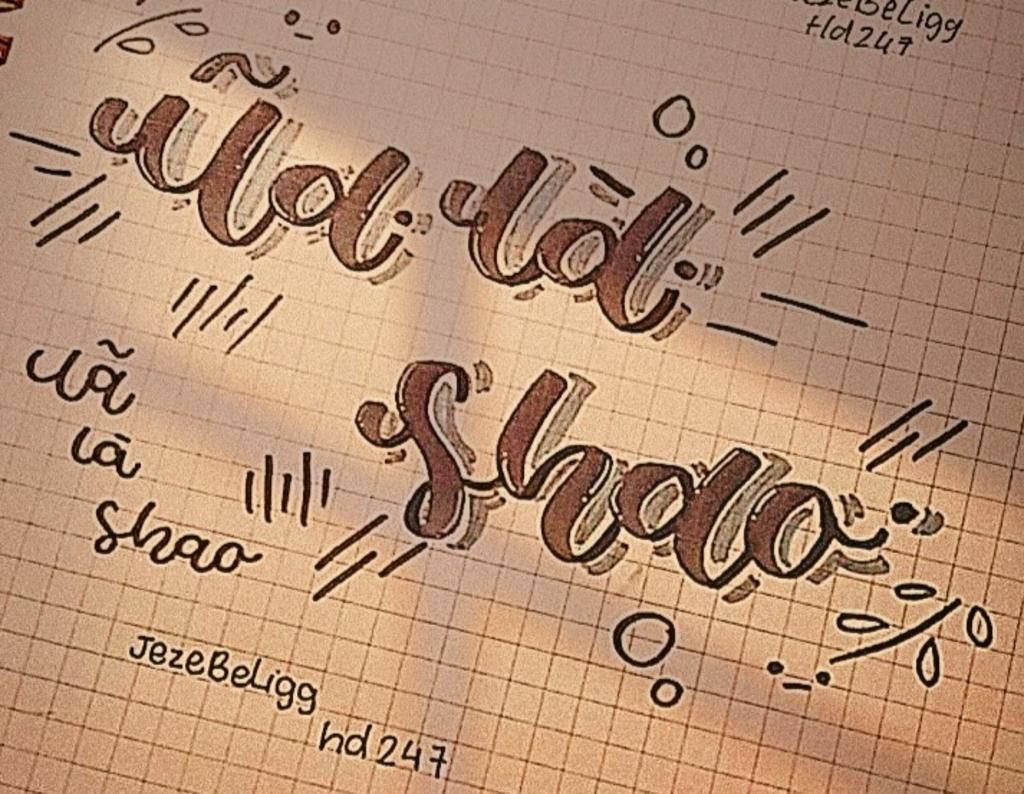 JezeBeLigg
Hd247
Ũa là
Shao
uã
là
shao
JezeBeLigg
hd247